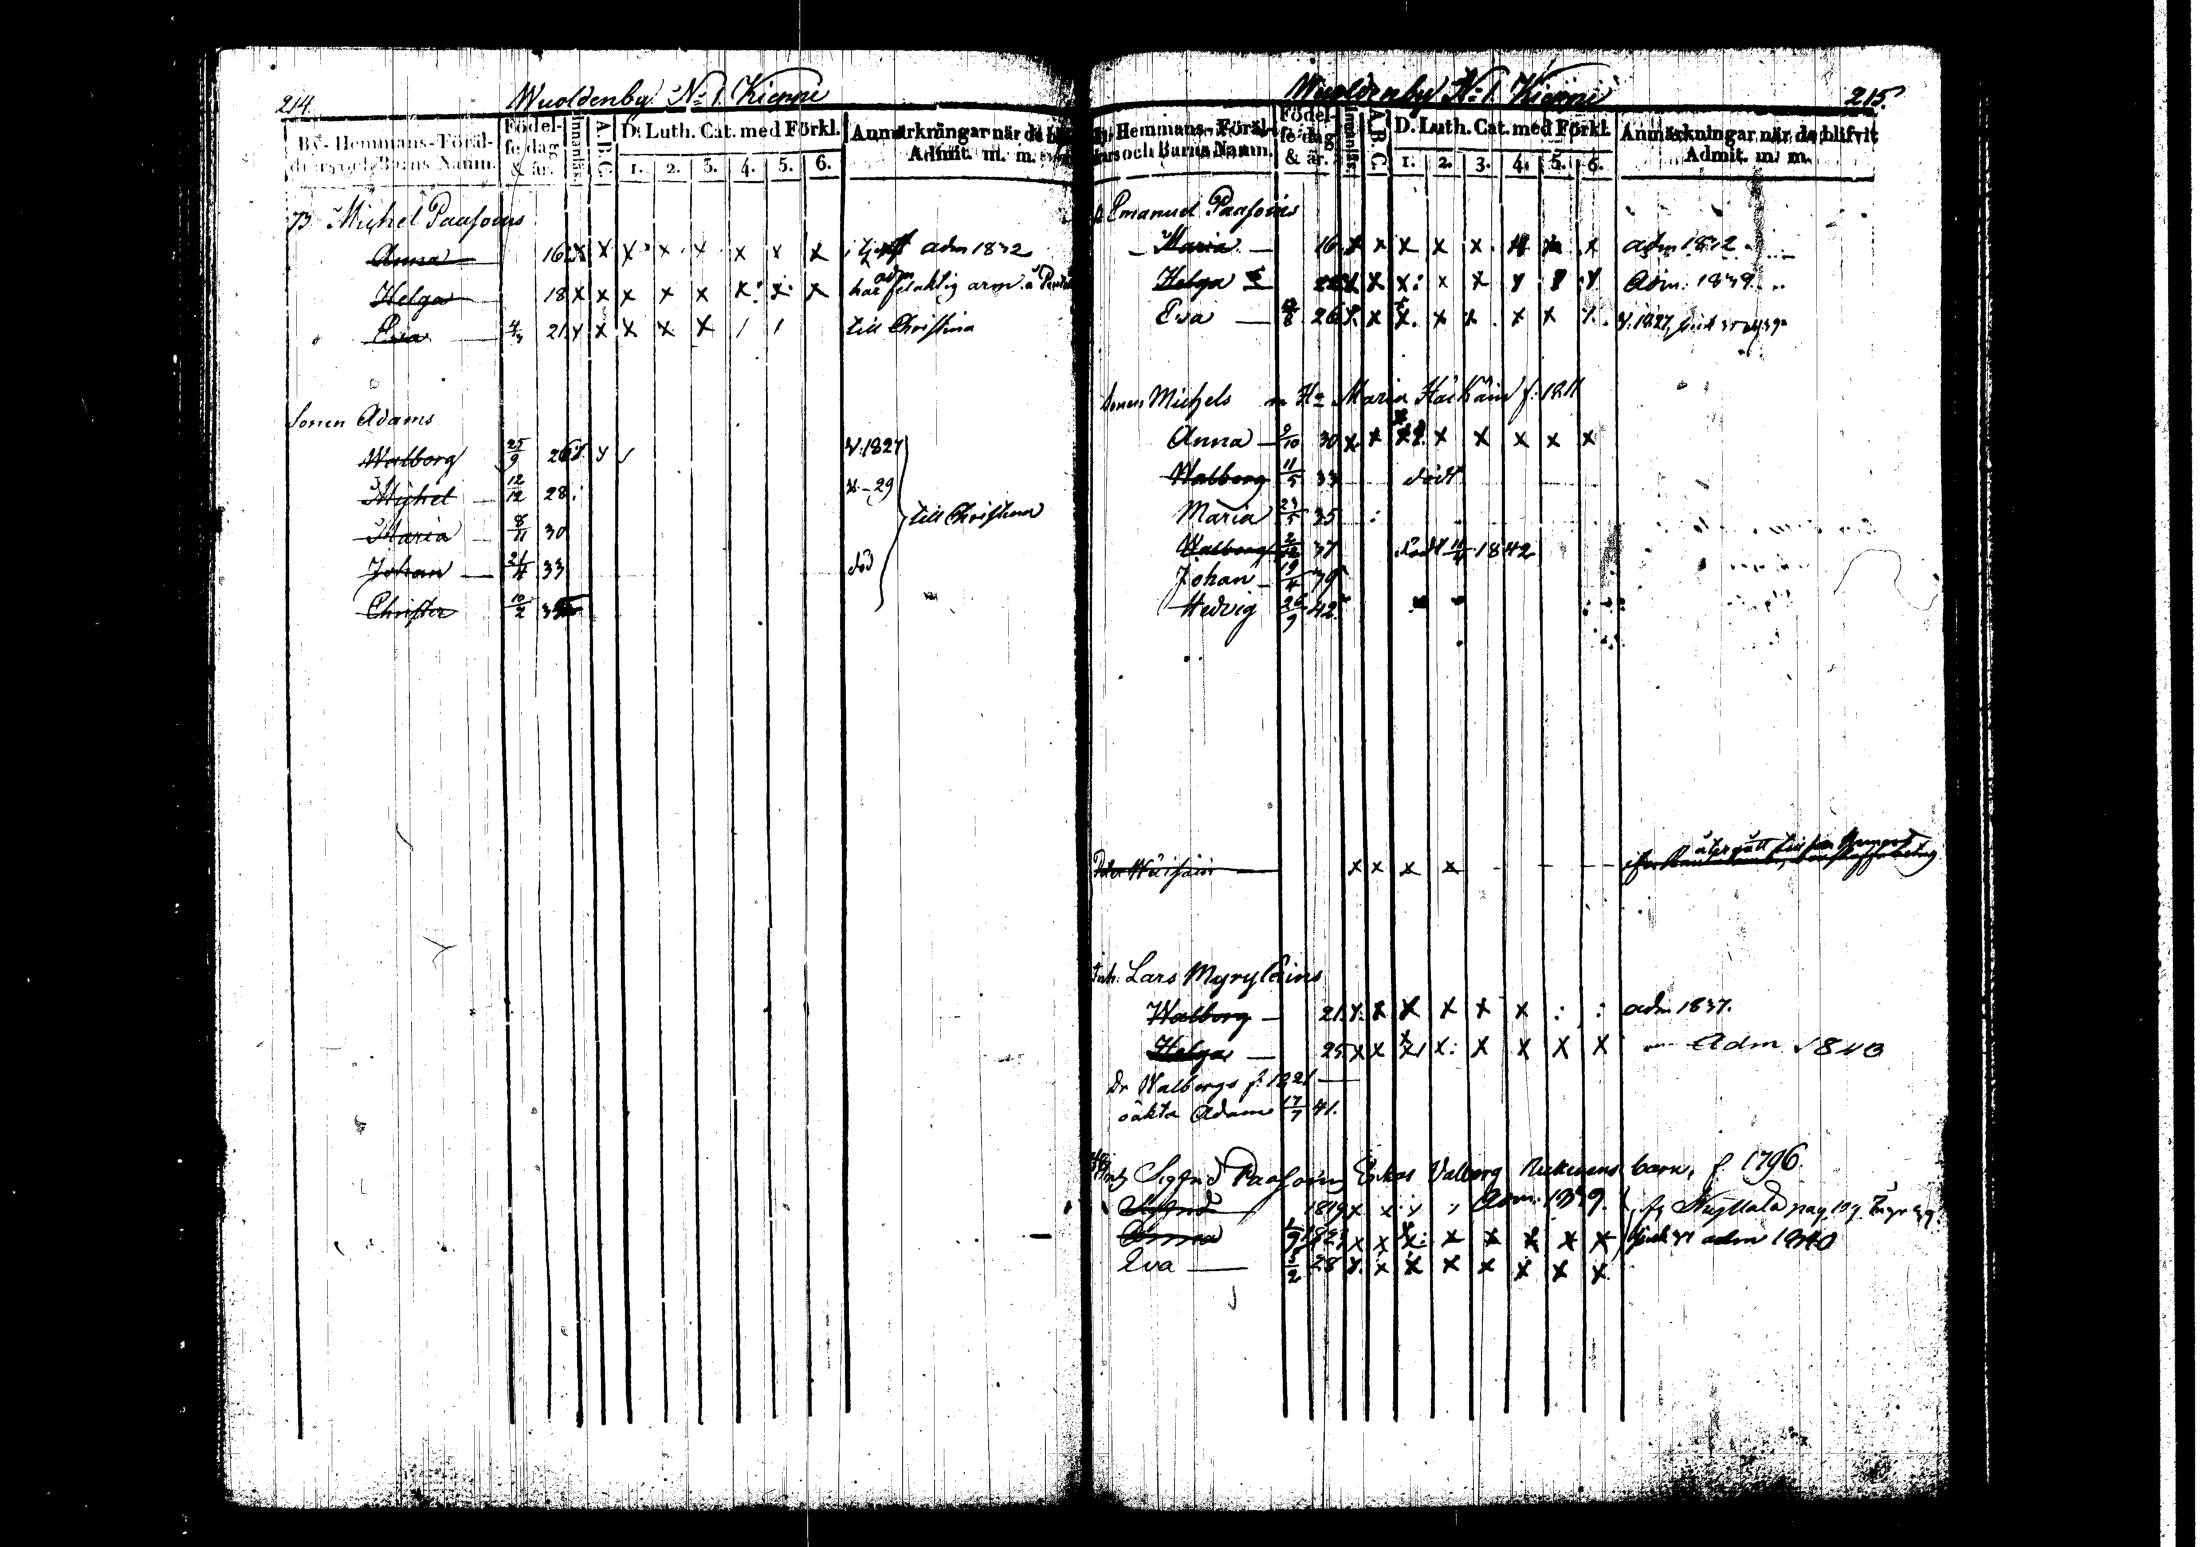 214.
Wuoldenby N:o 1 Kieppi
By- Hemmans- Föräl-
drars och Barns Namn.
Födel-
se dag
& år.
Innanläs.
A. B. C.
D. Luth. Cat. med Förkl.
1. 2. 3. 4. 5. 6.
Anmärkningar när de bl
Admit. m. m.
73 Michel Paasoins
Anna 16 x x x x x x x x adm 1832
Helga 18 x x x x x x: x: x har felaktig arm
Eva 21 x x x x x / / till Christina
Sonen Adams
Walborg 25/9 26 v. 1827
Michel 12/12 28 v. - 29
Maria 8/11 30
till Christina
Johan 21/4 33 död
Christer 10/2 35
Wuoldenby N:o 1 Kieppi
215.
By- Hemmans- Föräl-
drars och Barns Namn.
Födel-
se dag
& år.
Innanläs.
A. B. C.
D. Luth. Cat. med Förkl.
1. 2. 3. 4. 5. 6.
Anmärkningar när de blifvit
Admit. m. m.
Emanuel Paasoins
Maria 16 x x x x x x x x adm 1832
Helga 22 x x x: x x x x x Adm. 1839.
Eva 26 x. x x. x x x x x. v. 1827,
Sonen Michels m H:o Maria f. 1811
Anna 9/10 30 x x x x x x x x
Walborg 11/5 33 död
Maria 23/5 35
Walborg 37 död 1842
Johan 19/4 39
Hedvig 26/9 42
x x x x - - - återgått
Inh. Lars Myryläins
Walborg 21 x. x x x x x : : adm 1837.
Helga 25 x x x x: x x x x Adm 1840
Dr Walborgs f. 1821
oäkta Adam 17/7 41.
Sigfrid Paasoins Enkas Valborg barn, f. 1796
Sigfrid 1819 x x Adm. 1839.
Anna 1823 x x x: x x x x x adm 1840
Eva 28 x. x x x x x x x